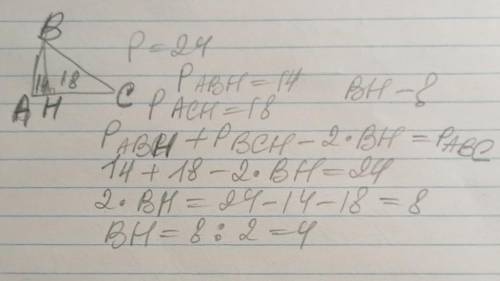 B
P = 24
14 18
A H C
P ABH = 14
P ACH = 18
BH - ?
P ABH + P BCH - 2 · BH = P ABC
14 + 18 - 2 · BH = 24
2 · BH = 24 - 14 - 18 = 8
BH = 8 : 2 = 4